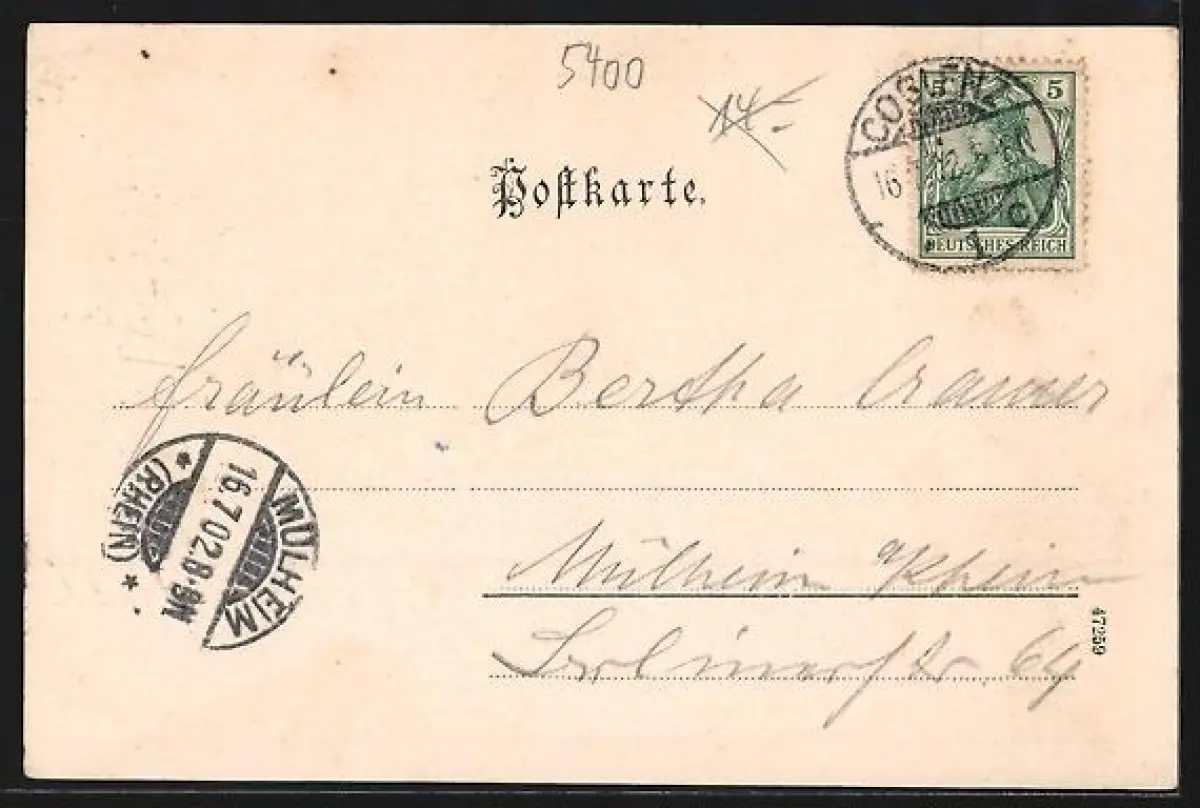 5400
14-
COBLENZ
5 5
16. 02. 5-
1 C
DEUTSCHES REICH
Postkarte.
Fräulein Bertha Cramer
MÜLHEIM
16.7.02.8-9N.
* (RHEIN) *
Mülheim a/Rhein
Berlinerstr. 64
47259